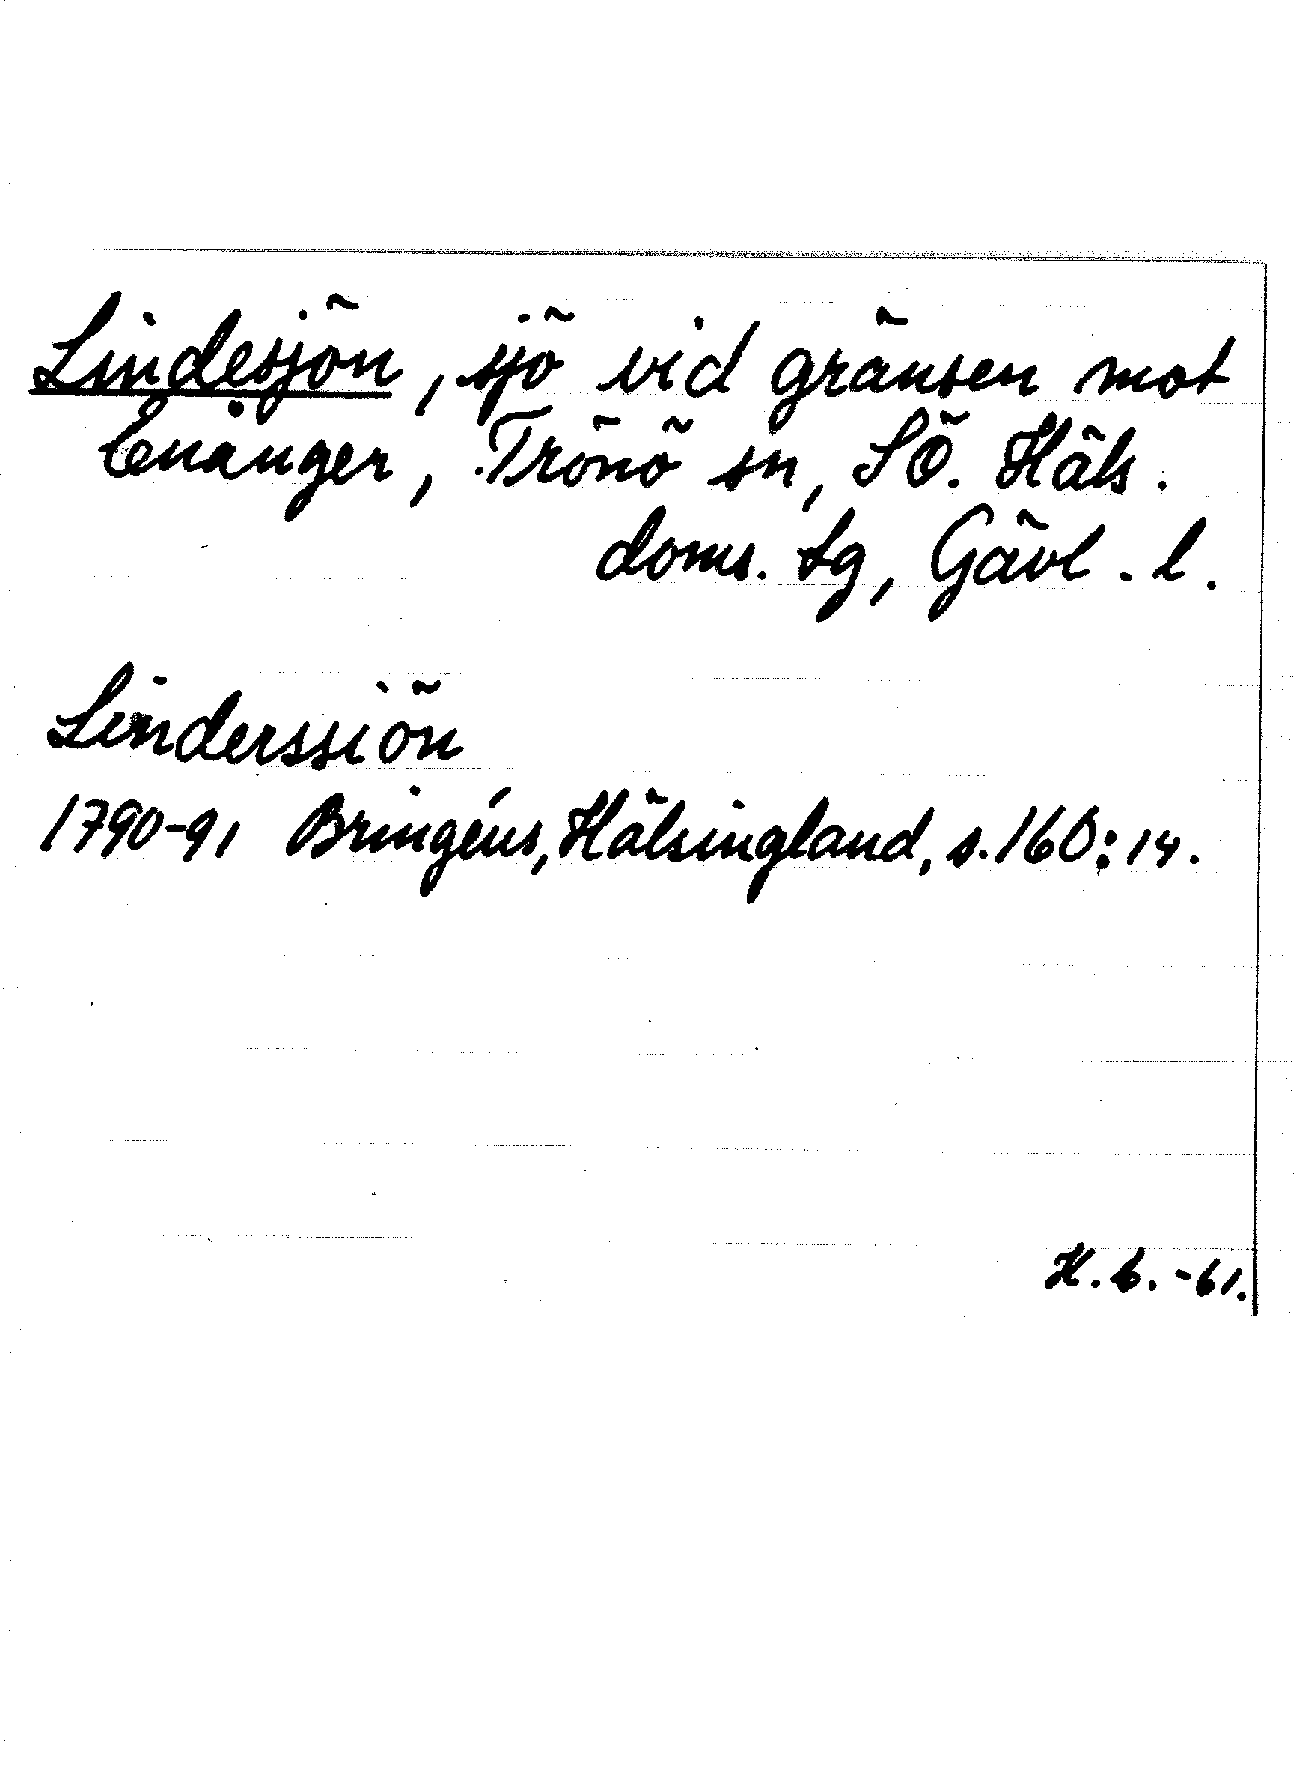 Lindesjön, sjö vid gränsen mot
Enånger, Trönö sn, SÖ. Häls.
doms. tg, Gävl. l.
Linderssiön
1790-91 Bringéus, Hälsingland, s. 160:14.
H. E. -61.